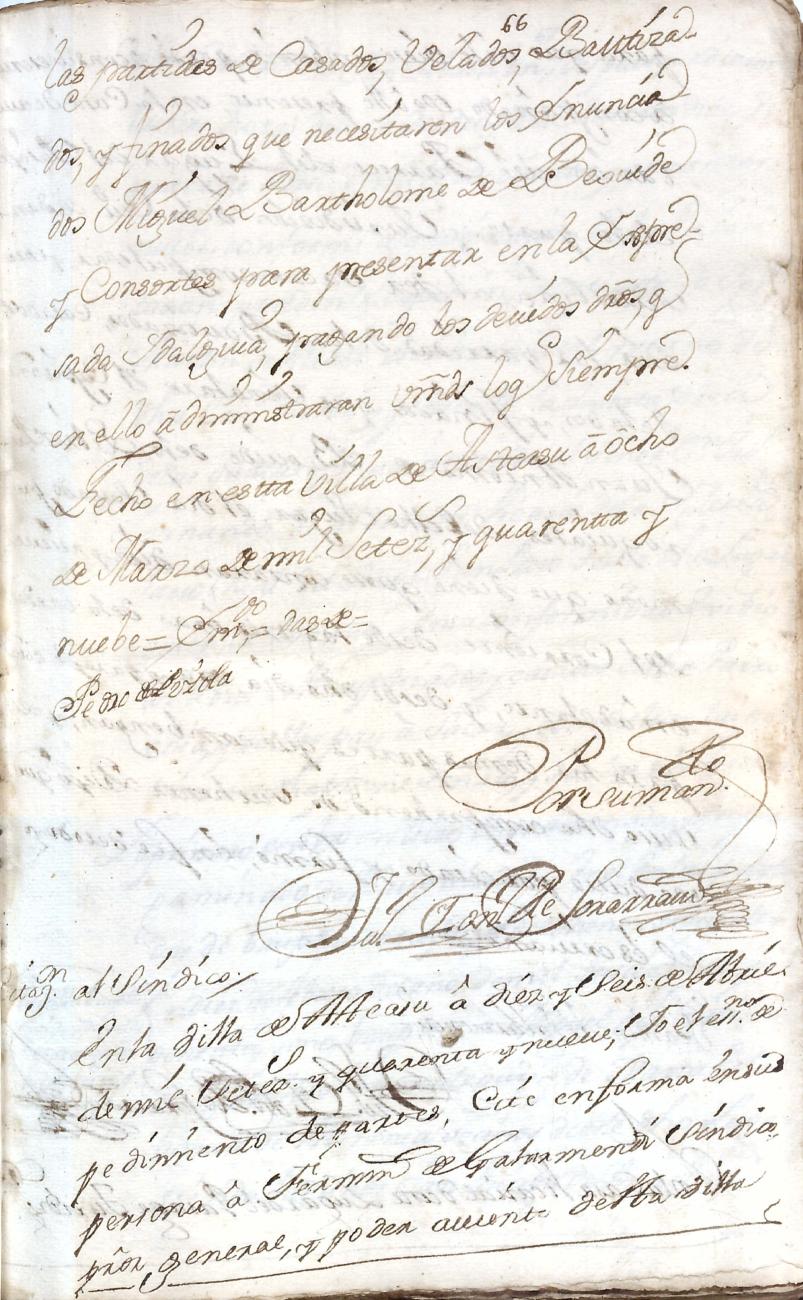 66
las partidas de Casados, Velados, Bautiza-
dos, y finados que necesitaren los Enuncia
dos Miguel Bartholome de Beovide
y Consortes para presentar en la Expre-
sada Ydalguia, pagando los devidos dros, q
en ello administraran Vmds log Siempre.
Fecho en estta Villa de Asteasu â ôcho
de Marzo de mil Setez, y quarentta y
nuebe = Emdo = das = de =
Pedro de
Por su mando
de Sorarrain
Citaon al Síndico
En la Villa de Asteasu â diez y Seis de Abril
de mil Setez. y quarenta y nueve, Yo el essno. de
pedimiento de partes, Cité en forma en su
persona â Fermin de Gaturmendi Síndico
pror general, y poder aviente desta Villa